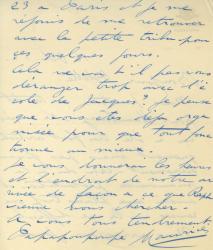 23 à Paris et je me
réjouis de me retrouver
avec la petite tribu pour
ces quelques jours.
Cela ne va t'il pas vous
déranger trop avec l'é
cole de Jacques. Je pense
que vous êtes déjà orga
nisée pour que tout fonc
tionne au mieux.
Je vous donnerai les heures
et l'endroit de notre ar
rivée de façon à ce que
vienne vous chercher.
A vous tous tendrement
Maurice